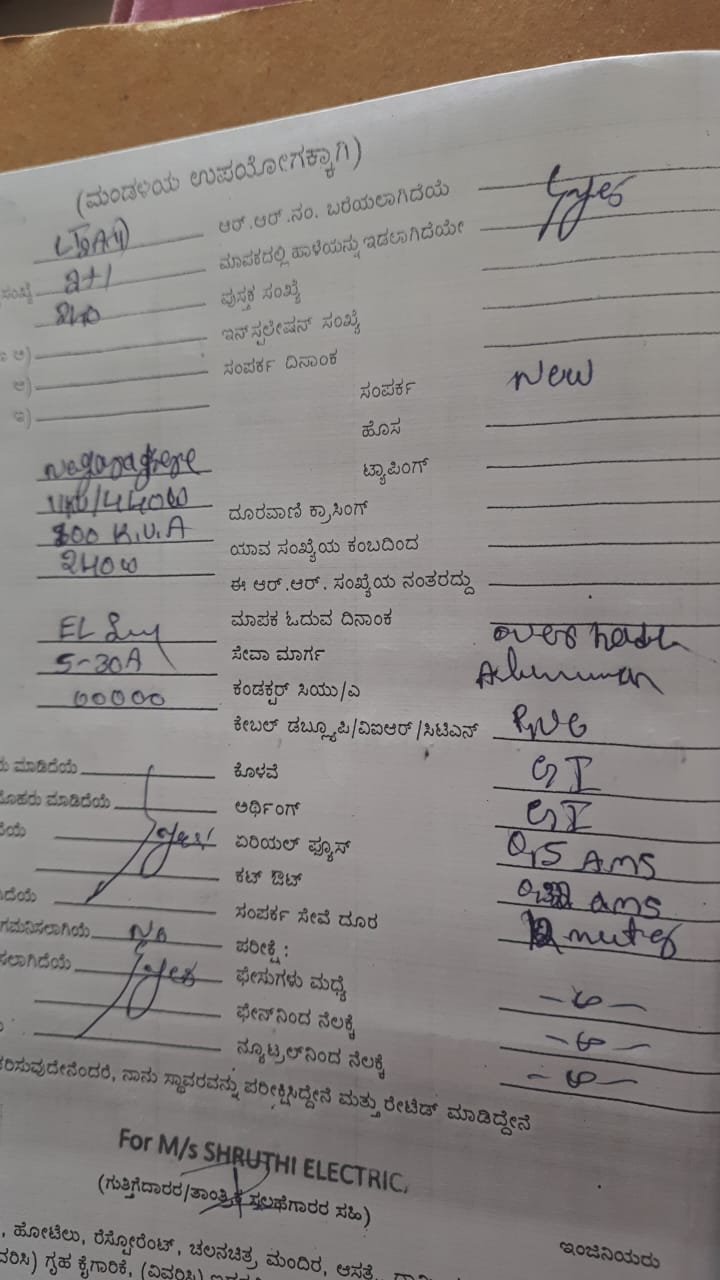 (ಮಂಡಳಿಯ ಉಪಯೋಗಕ್ಕಾಗಿ)
ಆರ್.ಆರ್.ನಂ. ಬರೆಯಲಾಗಿದೆಯೆ yes
ಸಂಖ್ಯೆ 2+1 ಮಾಪಕದಲ್ಲಿ ಹಾಳೆಯನ್ನು ಇಡಲಾಗಿದೆಯೇ
240 ಪುಸ್ತಕ ಸಂಖ್ಯೆ
ಇನ್‌ಸ್ಪಲೇಷನ್ ಸಂಖ್ಯೆ
ಸಂಪರ್ಕ ದಿನಾಂಕ
ಸಂಪರ್ಕ New
ಹೊಸ
Nagaragere ಟ್ಯಾಪಿಂಗ್
/440W ದೂರವಾಣಿ ಕ್ರಾಸಿಂಗ್
100 K.V.A ಯಾವ ಸಂಖ್ಯೆಯ ಕಂಬದಿಂದ
240W ಈ ಆರ್.ಆರ್. ಸಂಖ್ಯೆಯ ನಂತರದ್ದು
ಮಾಪಕ ಓದುವ ದಿನಾಂಕ
EL ಸೇವಾ ಮಾರ್ಗ over
5-30A ಕಂಡಕ್ಟರ್ ಸಿಯು/ಎ
00000 ಕೇಬಲ್ ಡಬ್ಲ್ಯೂಪಿ/ವಿಐಆರ್/ಸಿಟಿಎನ್ PVC
ಮಾಡಿದೆಯೆ ಕೊಳವೆ GI
ಮಾಡಿದೆಯೆ ಅರ್ಥಿಂಗ್ GI
yes ಏರಿಯಲ್ ಫ್ಯೂಸ್ 0,5 AMS
ಕಟ್ ಔಟ್ ams
ಸಂಪರ್ಕ ಸೇವೆ ದೂರ
ಗಮನಿಸಲಾಗಿಯೆ No ಪರೀಕ್ಷೆ:
ಸಲಾಗಿದೆಯೆ yes ಫೇಸುಗಳು ಮಧ್ಯೆ
ಫೇನ್‌ನಿಂದ ನೆಲಕ್ಕೆ
ನ್ಯೂಟ್ರಲ್‌ನಿಂದ ನೆಲಕ್ಕೆ
ಕರಿಸುವುದೇನೆಂದರೆ, ನಾನು ಸ್ಥಾವರವನ್ನು ಪರೀಕ್ಷಿಸಿದ್ದೇನೆ ಮತ್ತು ರೇಟೆಡ್ ಮಾಡಿದ್ದೇನೆ
For M/s SHRUTHI ELECTRIC,
(ಗುತ್ತಿಗೆದಾರರ/ತಾಂತ್ರಿಕ ಸಲಹೆಗಾರರ ಸಹಿ)
ಇಂಜಿನಿಯರು
, ಹೋಟೆಲು, ರೆಸ್ಪೋರೆಂಟ್, ಚಲನಚಿತ್ರ ಮಂದಿರ, ಆಸ್ಪತ್ರೆ,
ವರಿಸಿ) ಗೃಹ ಕೈಗಾರಿಕೆ, (ವಿವರಿಸಿ)